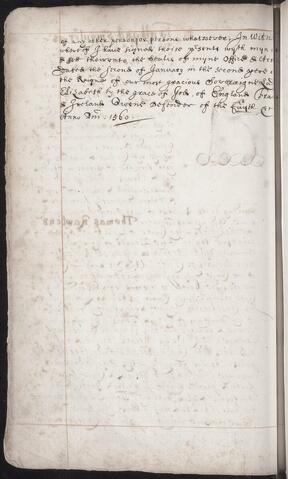 of any other person or persons whatsoever. In Witn
whereof I have signed these pñts with myn
& thereunto the Seale of myne Office
dated the second of January in the second yere o
the Raigne of our most gracious Soveraigne
Elizabeth by the grace of God of England
& Ireland Quene Defendor of the Fayth
Anno Dñi: 1560